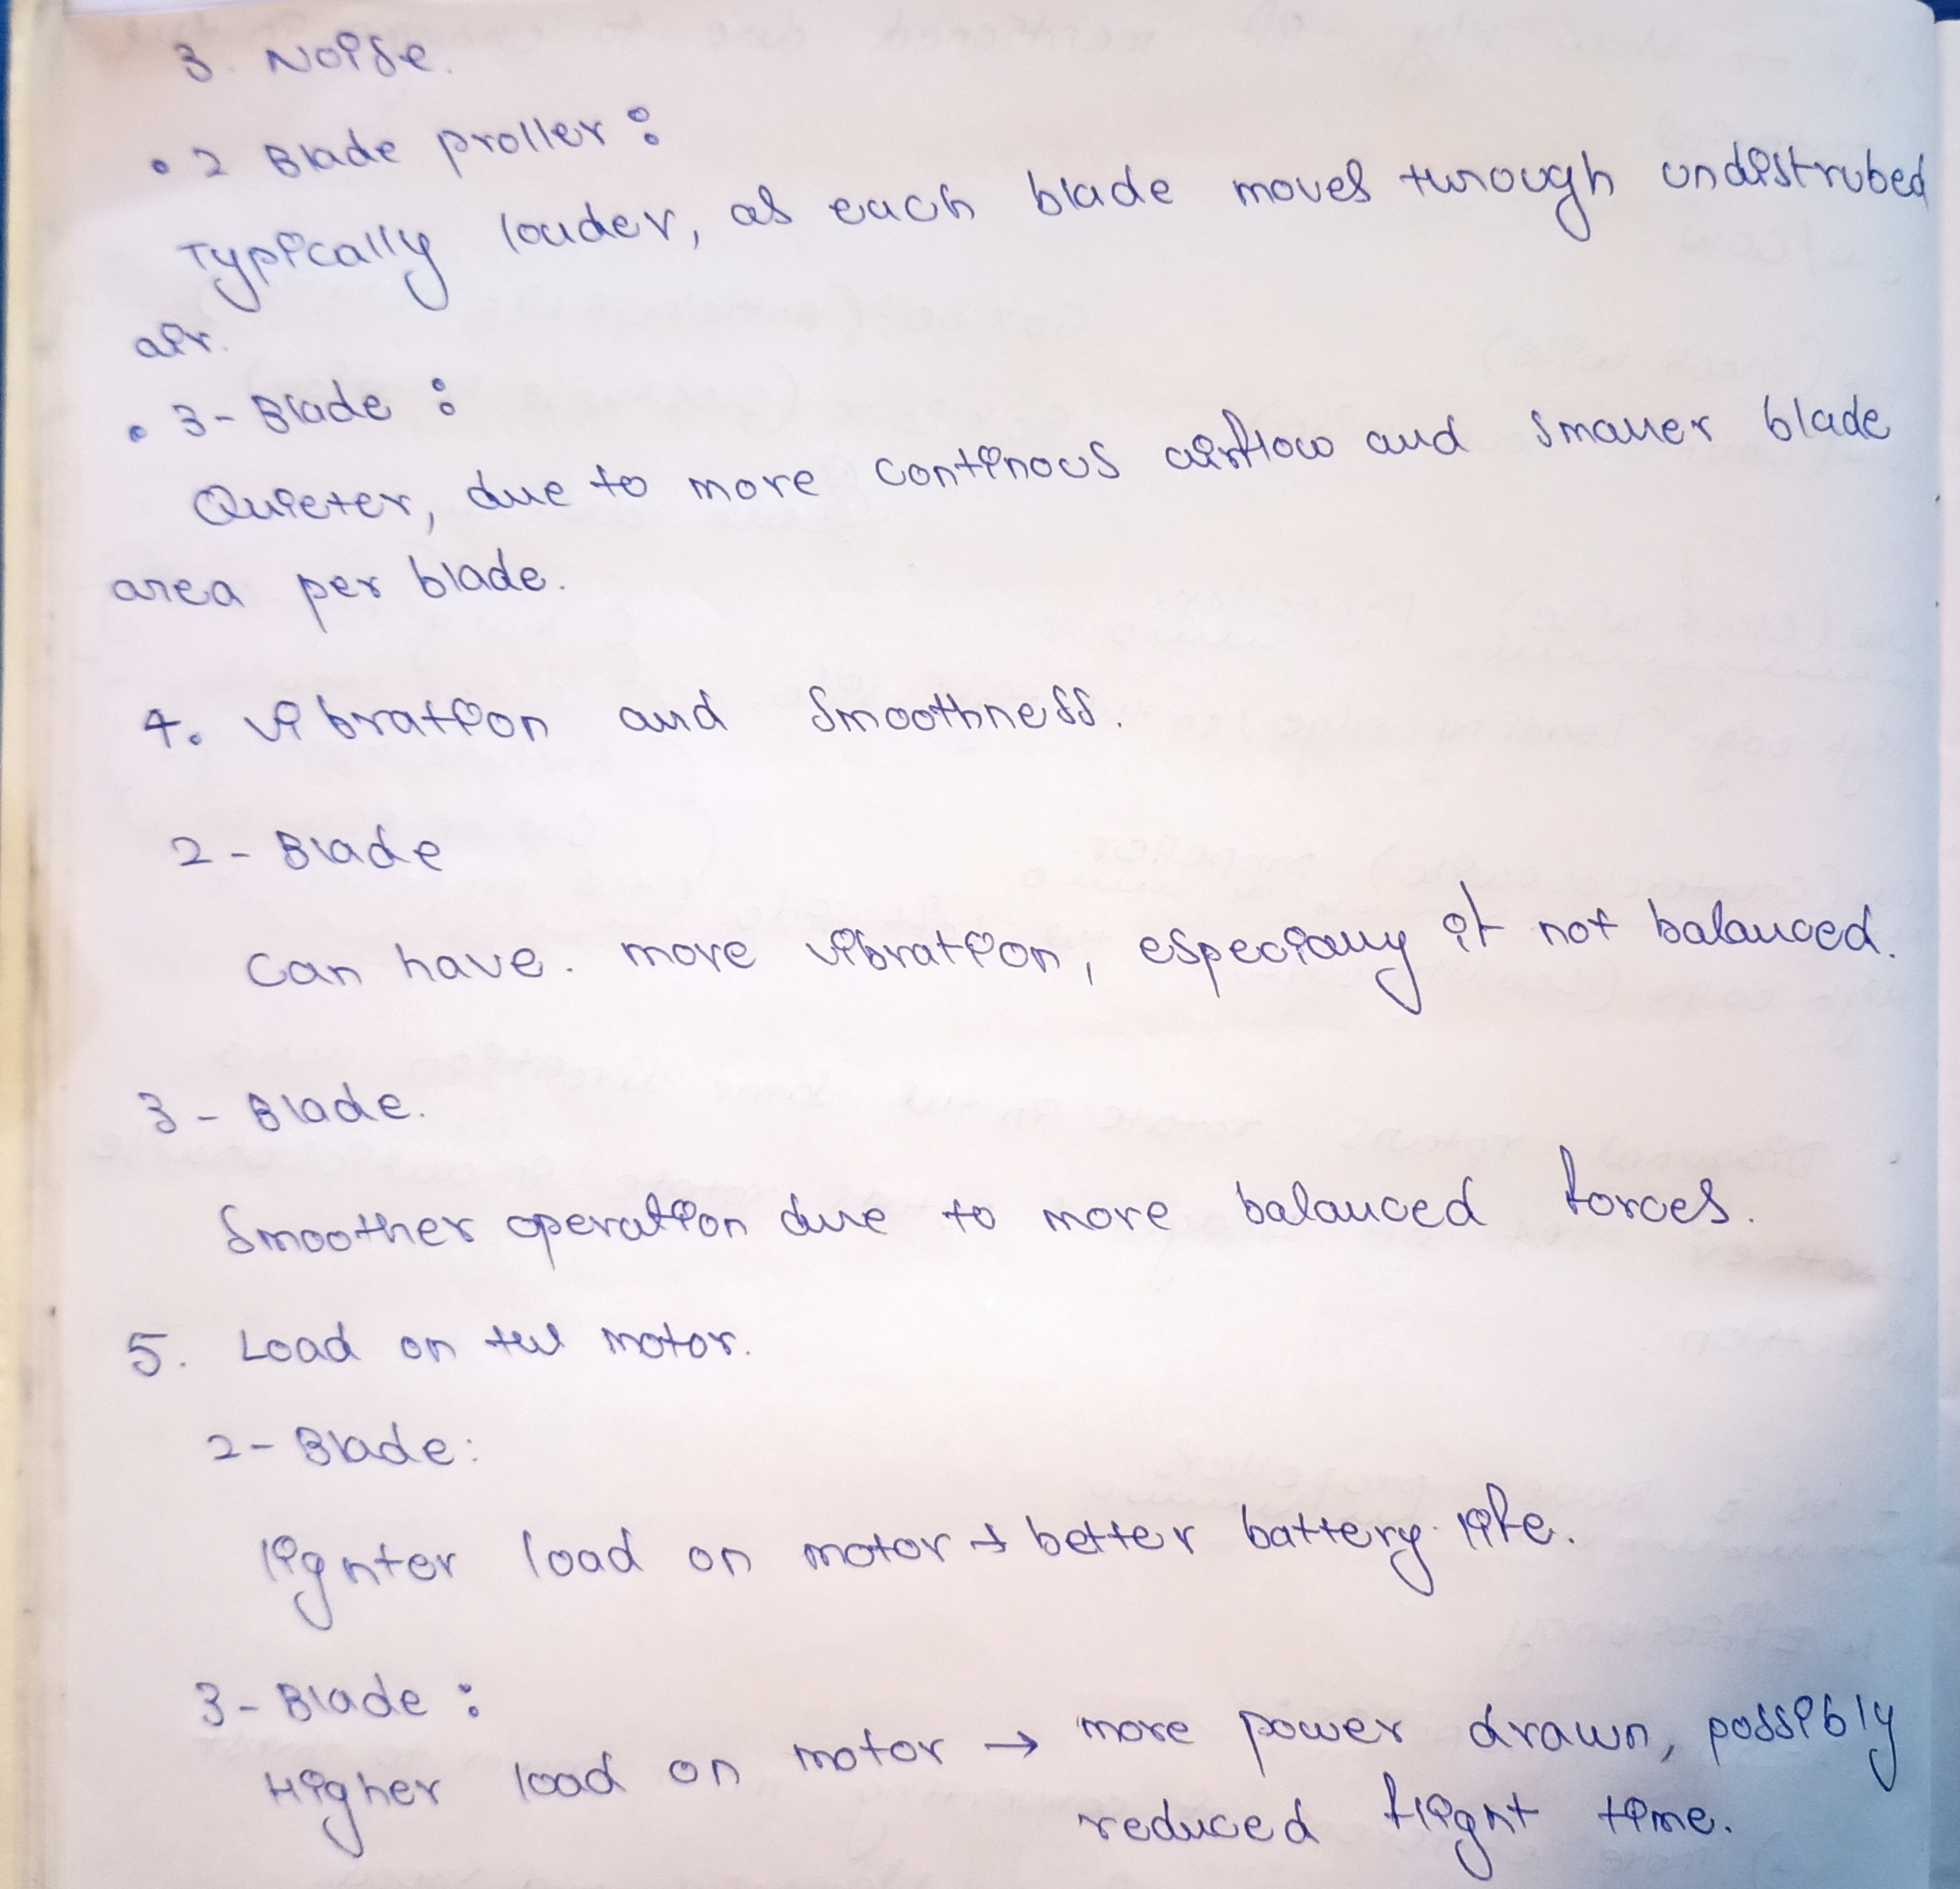 3. Noise.
• 2 Blade proller :
Typically louder, as each blade moves through undistrubed
air.
• 3- Blade :
Quieter, due to more continous airflow and smaller blade
area per blade.
4. Vibration and Smoothness.
2 - Blade
can have. more vibration, especially if not balanced.
3 - Blade.
Smoother operation due to more balanced forces.
5. Load on the motor.
2- Blade:
lighter load on motor → better battery life.
3- Blade :
Higher load on motor → more power drawn, possibly
reduced flight time.